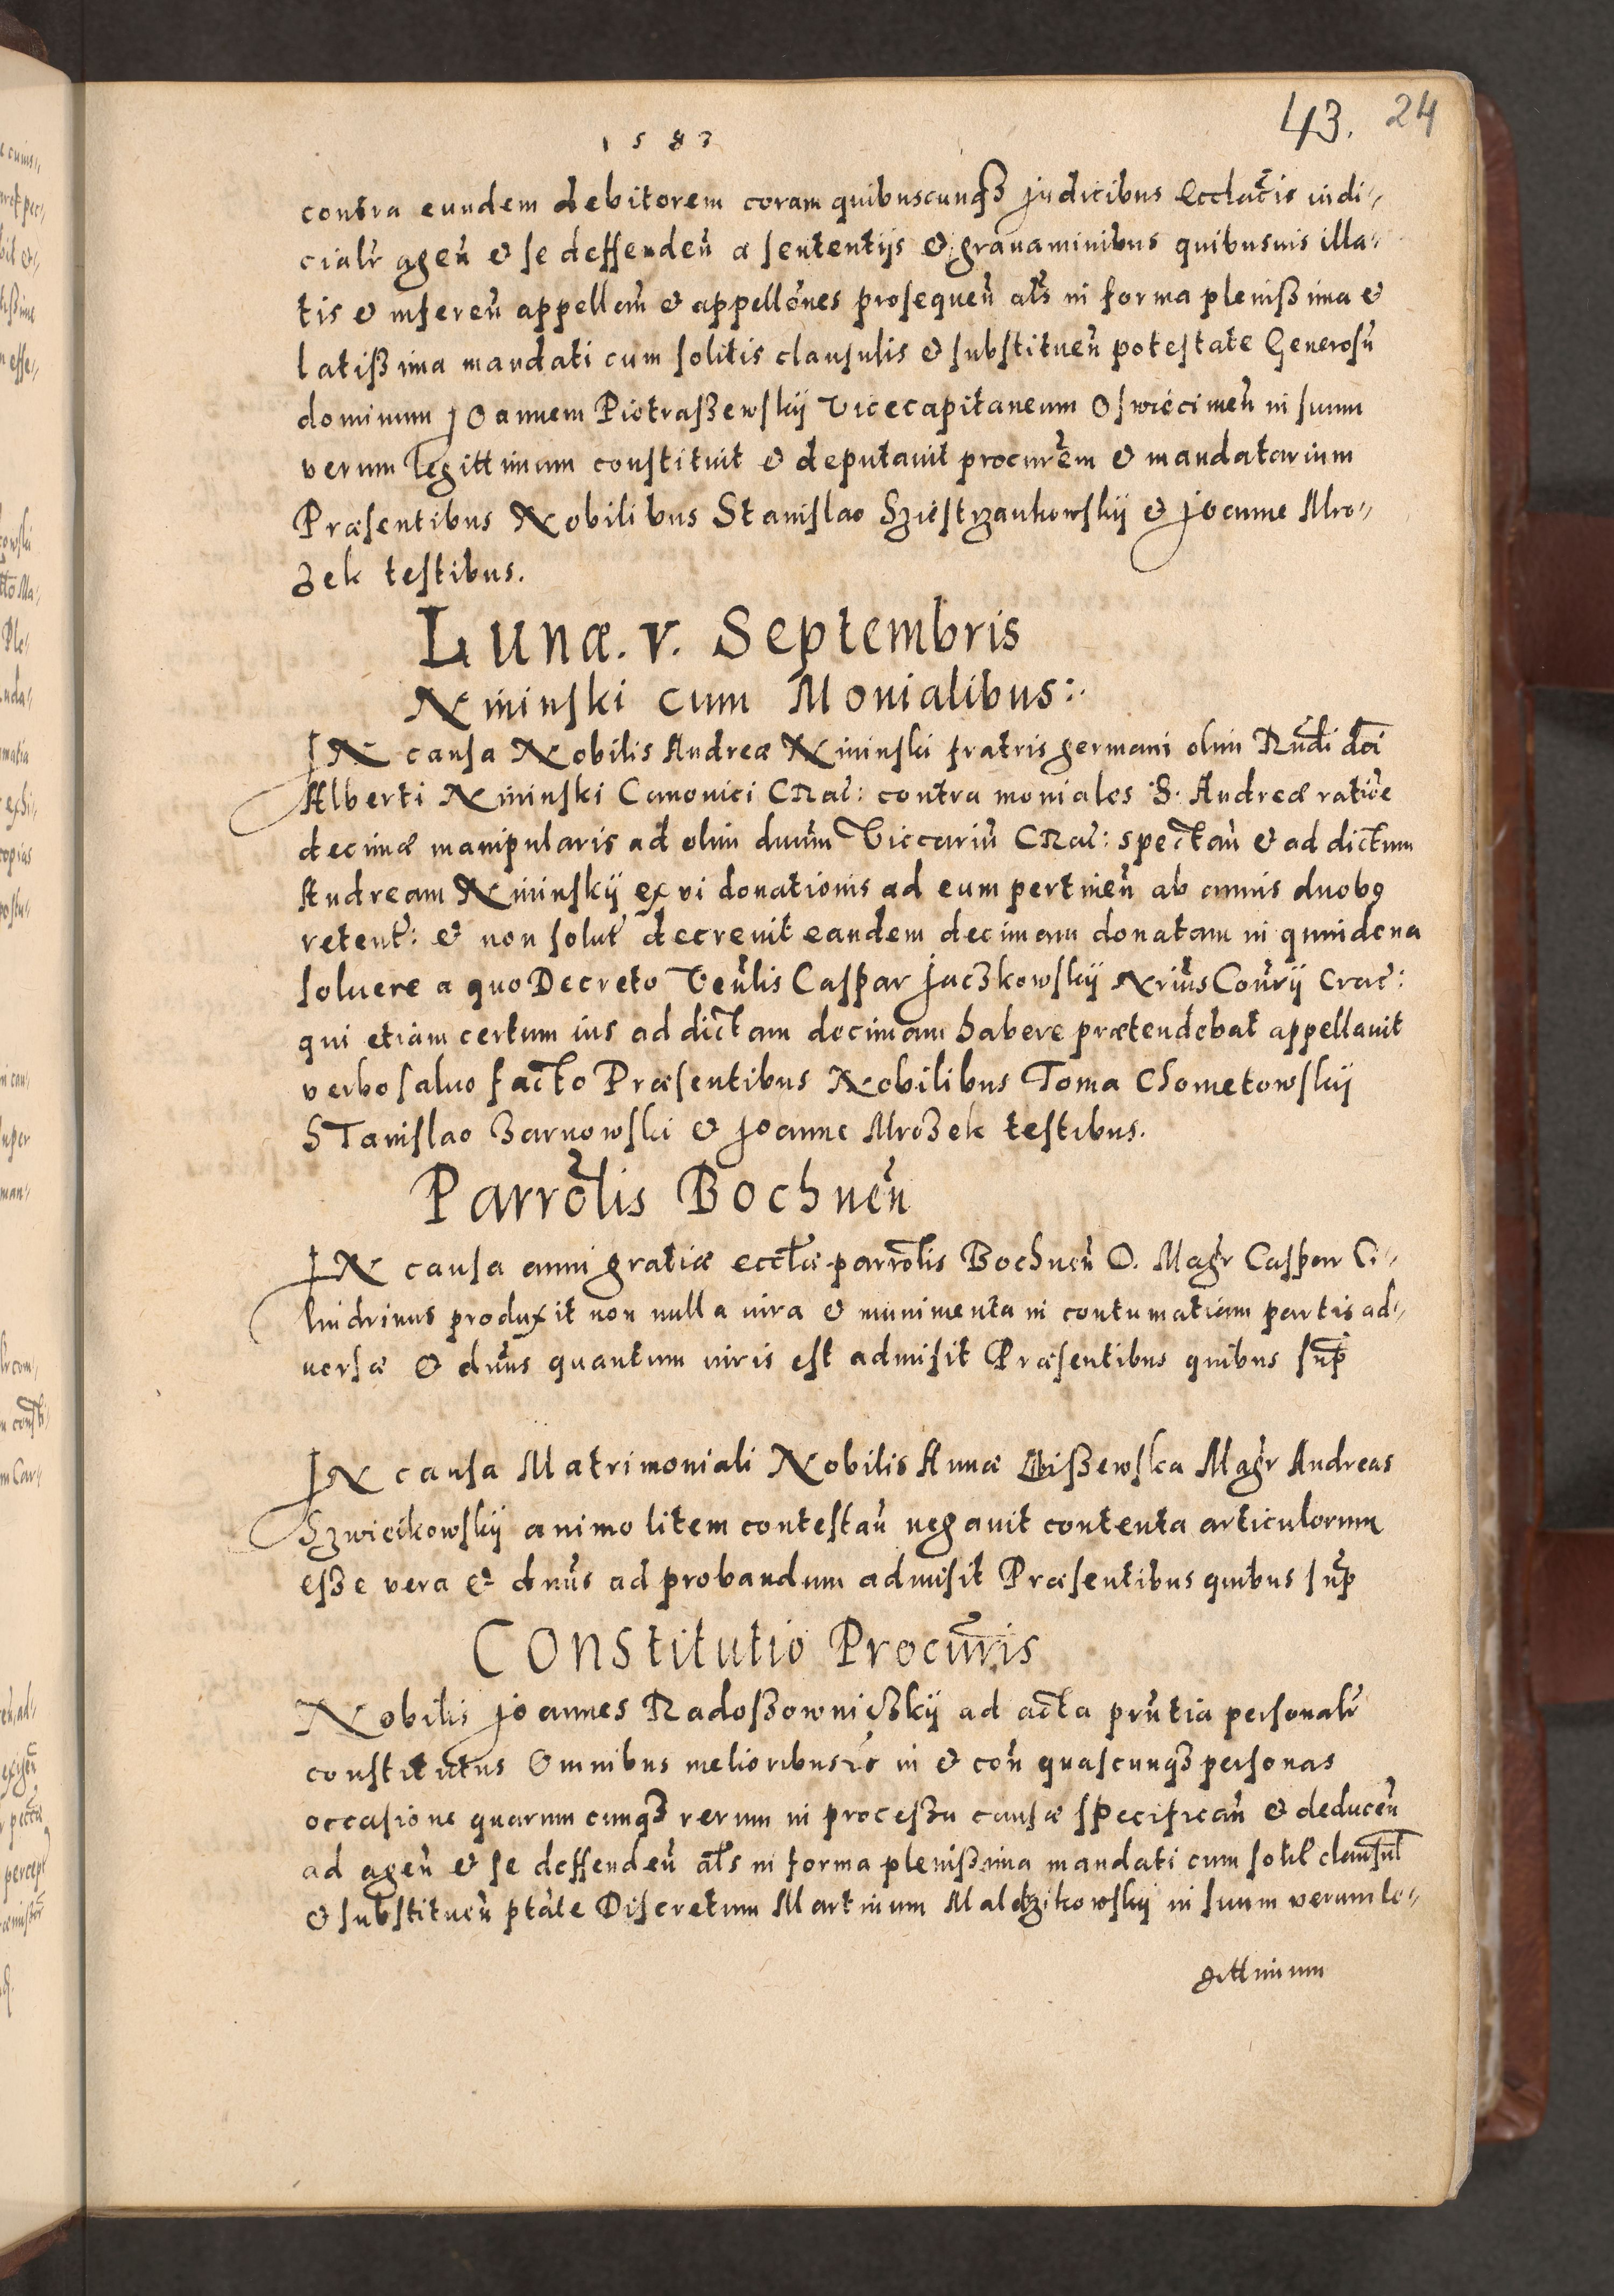 43. 24
1583
contra eundem debitorem coram quibuscunqꝫ Judicibus Eccl̃acis iudi„
cialr̃ ageñ & se deffendeñ a sententijs & grauaminibus quibusuis illa„
tis & infereñ appellañ & appellões prosequeñ als̃ in forma pleniß ima &
latiß ima mandati cum solitis clausulis & substitueñ potestate Generosũ
dominum Joannem Piotraßewskij Vicecapitaneum Oswiecimeñ in suum
verum legittimum constituit & deputauit procurẽm & mandatarium
Præsentibus Nobilibus Stanislao Sziestrzankowskij & Joanne Mro„
zek testibus.
Lunæ. v. Septembris
Nininski cum Monialibus:.
IN causa Nobilis Andreæ Nininski fratris germani olim Rñdi dñi
Alberti Nininski Canonici CRac̃: contra moniales S. Andreæ ratiõe
decimæ manipularis ad olim dnũm Viccariũ CRac̃: spectañ & ad dictum
Andream Nininskij ex vi donationis ad eum pertineñ ab annis duobꝯ
retent̃: & non solut̃ decreuit eandem decimam donatam in quindena
soluere a quo Decreto Veñlis Caspar Jaczkowskij Nriũs Coñrij Crac̃:
qui etiam certum ius ad dictam decimam habere prætendebat appellauit
verbo saluo facto Præsentibus Nobilibus Toma Chometowskij
STanislao Zarnowski & Joanne Mrozek testibus.
Parrõlis Bochneñ
IN causa anni gratiæ eccl̃æ parrõlis Bochneñ D. Magr̃ Caspar Ci„
lindrinus produxit non nulla iura & munimenta in contumatiam partis ad„
uersæ & dnũs quantum iuris est admisit Præsentibus quibus sup̃
IN causa Matrimoniali Nobilis Annæ Wißewska Magr̃ Andreas
Szwieikowskij animo litem contestañ negauit contenta articulorum
esße vera & dnũs ad probandum admisit Præsentibus quibus sup̃
Constitutio Procur̃is
Nobilis Joannes Radoßowniczkij ad acta prñtia personalr̃
constitutus Omnibus melioribus ꝛc in & coñ quascunqꝫ personas
occasione quarum cunqꝫ rerum in proceßu causæ specificañ & deduceñ
ad ageñ & se deffendeñ als̃ in forma plenißima mandati cum solit̃ clausul̃
& substitueñ ptãte Discretum Martinum Maldzikowskij in suum verum le„
gittimum